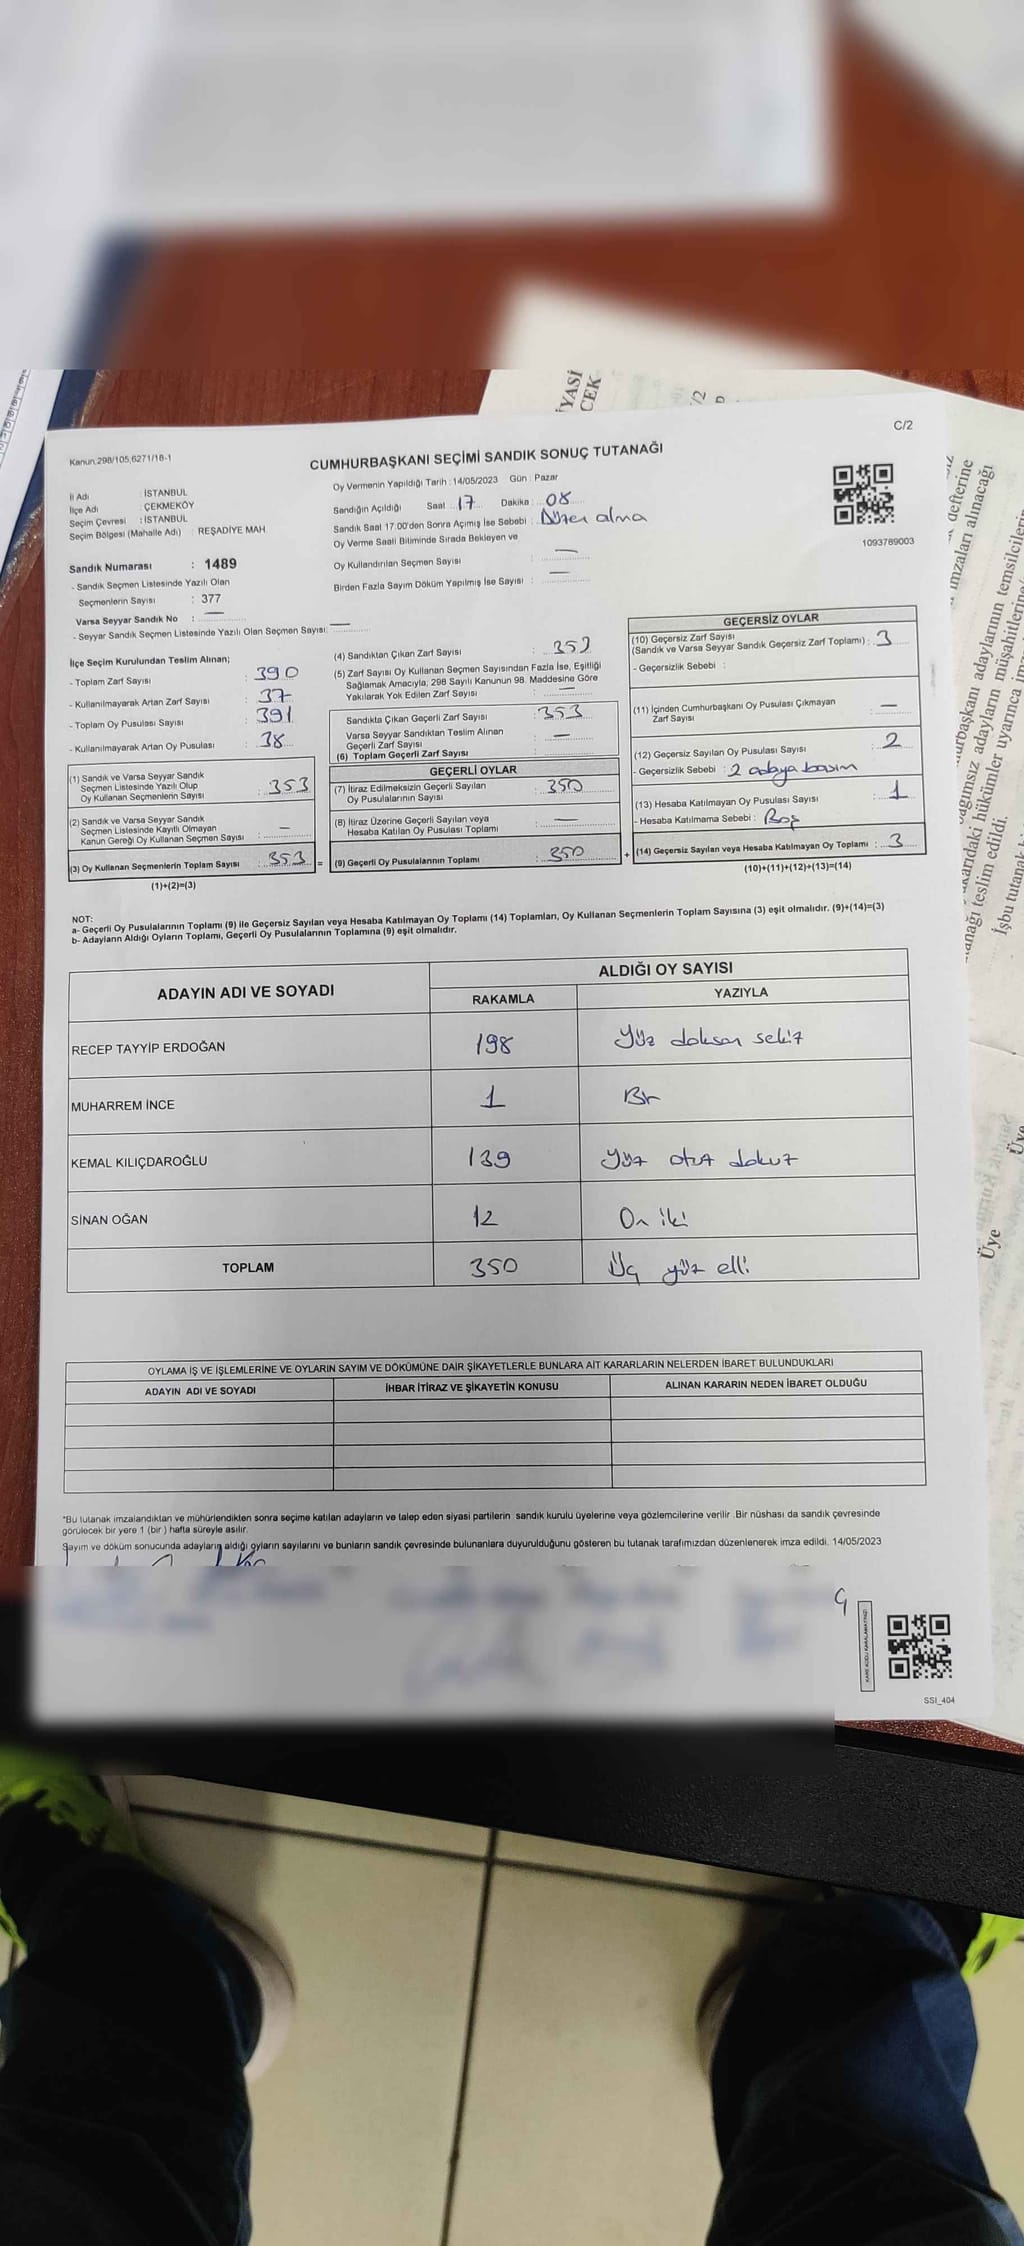 C/2
Kanun.298/105,6271/18-1
CUMHURBAŞKANI SEÇİMİ SANDIK SONUÇ TUTANAĞI
İl Adı : İSTANBUL
İlçe Adı : ÇEKMEKÖY
Seçim Çevresi : İSTANBUL
Seçim Bölgesi (Mahalle Adı) : REŞADİYE MAH.
Oy Vermenin Yapıldığı Tarih : 14/05/2023 Gün : Pazar
Sandığın Açıldığı Saat 17 Dakika : 08
Sandık Saat 17:00'den Sonra Açımış İse Sebebi : Düzen alma
Oy Verme Saati Bitiminde Sırada Bekleyen ve
Oy Kullandırılan Seçmen Sayısı : —
Birden Fazla Sayım Döküm Yapılmış İse Sayısı : —
1093789003
Sandık Numarası : 1489
- Sandık Seçmen Listesinde Yazılı Olan
Seçmenlerin Sayısı : 377
Varsa Seyyar Sandık No : —
- Seyyar Sandık Seçmen Listesinde Yazılı Olan Seçmen Sayısı: —
İlçe Seçim Kurulundan Teslim Alınan;
- Toplam Zarf Sayısı : 390
- Kullanılmayarak Artan Zarf Sayısı : 37
- Toplam Oy Pusulası Sayısı : 391
- Kullanılmayarak Artan Oy Pusulası : 38
(1) Sandık ve Varsa Seyyar Sandık
Seçmen Listesinde Yazılı Olup
Oy Kullanan Seçmenlerin Sayısı : 353
(2) Sandık ve Varsa Seyyar Sandık
Seçmen Listesinde Kayıtlı Olmayan
Kanun Gereği Oy Kullanan Seçmen Sayısı : —
(3) Oy Kullanan Seçmenlerin Toplam Sayısı : 353 =
(1)+(2)=(3)
(4) Sandıktan Çıkan Zarf Sayısı : 353
(5) Zarf Sayısı Oy Kullanan Seçmen Sayısından Fazla İse, Eşitliği
Sağlamak Amacıyla, 298 Sayılı Kanunun 98. Maddesine Göre
Yakılarak Yok Edilen Zarf Sayısı : —
Sandıkta Çıkan Geçerli Zarf Sayısı : 353
Varsa Seyyar Sandıktan Teslim Alınan
Geçerli Zarf Sayısı : —
(6) Toplam Geçerli Zarf Sayısı :
GEÇERLİ OYLAR
(7) İtiraz Edilmeksizin Geçerli Sayılan
Oy Pusulalarının Sayısı : 350
(8) İtiraz Üzerine Geçerli Sayılan veya
Hesaba Katılan Oy Pusulası Toplamı : —
(9) Geçerli Oy Pusulalarının Toplamı : 350 +
GEÇERSİZ OYLAR
(10) Geçersiz Zarf Sayısı
(Sandık ve Varsa Seyyar Sandık Geçersiz Zarf Toplamı) : 3
- Geçersizlik Sebebi :
(11) İçinden Cumhurbaşkanı Oy Pusulası Çıkmayan
Zarf Sayısı : —
(12) Geçersiz Sayılan Oy Pusulası Sayısı : 2
- Geçersizlik Sebebi : 2 adaya basım
(13) Hesaba Katılmayan Oy Pusulası Sayısı : 1
- Hesaba Katılmama Sebebi : Boş
(14) Geçersiz Sayılan veya Hesaba Katılmayan Oy Toplamı : 3
(10)+(11)+(12)+(13)=(14)
NOT:
a- Geçerli Oy Pusulalarının Toplamı (9) ile Geçersiz Sayılan veya Hesaba Katılmayan Oy Toplamı (14) Toplamları, Oy Kullanan Seçmenlerin Toplam Sayısına (3) eşit olmalıdır. (9)+(14)=(3)
b- Adayların Aldığı Oyların Toplamı, Geçerli Oy Pusulalarının Toplamına (9) eşit olmalıdır.
ADAYIN ADI VE SOYADI ALDIĞI OY SAYISI
RAKAMLA YAZIYLA
RECEP TAYYİP ERDOĞAN 198 Yüz doksan sekiz
MUHARREM İNCE 1 Bir
KEMAL KILIÇDAROĞLU 139 Yüz otuz dokuz
SİNAN OĞAN 12 On iki
TOPLAM 350 Üç yüz elli
OYLAMA İŞ VE İŞLEMLERİNE VE OYLARIN SAYIM VE DÖKÜMÜNE DAİR ŞİKAYETLERLE BUNLARA AİT KARARLARIN NELERDEN İBARET BULUNDUKLARI
ADAYIN ADI VE SOYADI İHBAR İTİRAZ VE ŞİKAYETİN KONUSU ALINAN KARARIN NEDEN İBARET OLDUĞU
*Bu tutanak imzalandıktan ve mühürlendikten sonra seçime katılan adayların ve talep eden siyasi partilerin sandık kurulu üyelerine veya gözlemcilerine verilir .Bir nüshası da sandık çevresinde
görülecek bir yere 1 (bir) hafta süreyle asılır.
Sayım ve döküm sonucunda adayların aldığı oyların sayılarını ve bunların sandık çevresinde bulunanlara duyurulduğunu gösteren bu tutanak tarafımızdan düzenlenerek imza edildi. 14/05/2023
KARE KODU KARALAMAYINIZ!
SSI_404
YASİ
CEK
defterine
imzaları alınacağı
urbaşkanı adaylarının temsilcilerin
bağımsız adayların müşahitlerine
karıdaki hükümler uyarınca
anağı teslim edildi.
İşbu tutanak
Üye
Üye